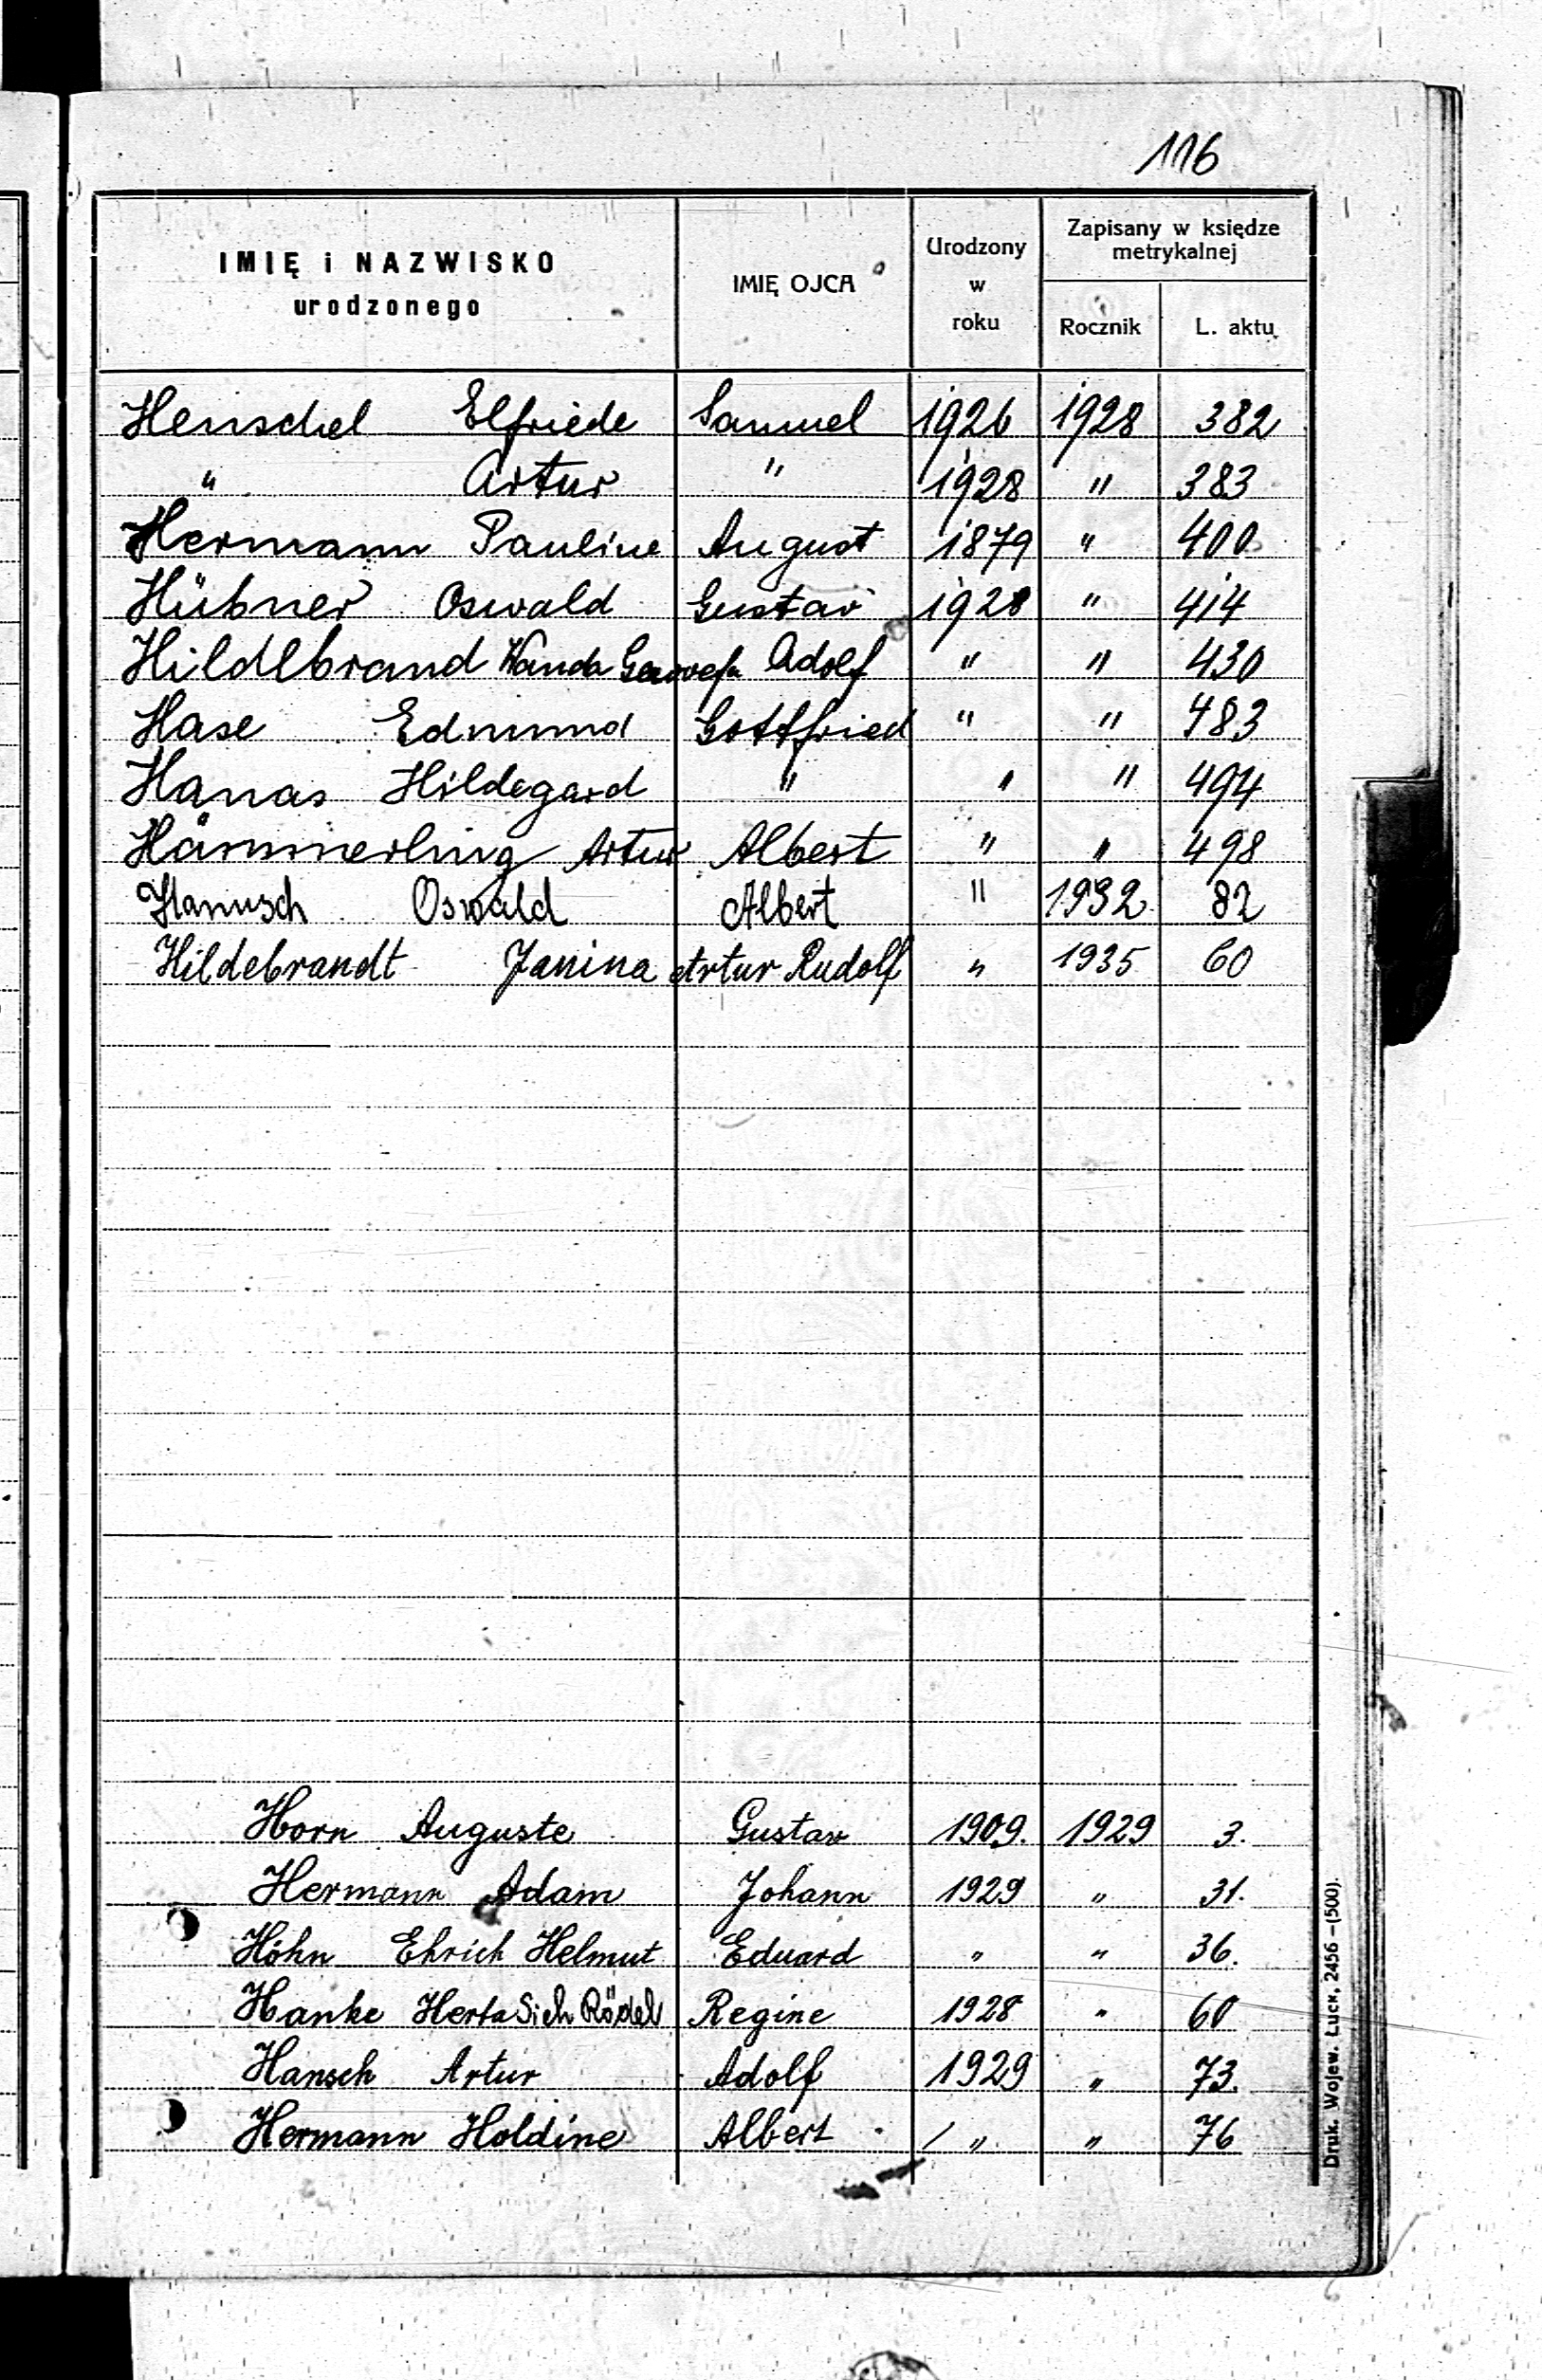 116
IMIĘ i NAZWISKO urodzonego IMIĘ OJCA Urodzony w roku Zapisany w księdze metrykalnej Rocznik L. aktu
Henschel Elfriede Samuel 1926 1928 382
" Artur " 1928 " 383
Hermann Pauline August 1879 " 400
Hübner Oswald Gustav 1928 " 414
Hildlbrand Wanda Adolf " " 430
Hase Edmund Gottfried " " 483
Hanas Hildegard " " " 494
Hämmerling Artur Albert " " 498
Hanusch Oswald Albert " 1932 82
Hildebrandt Janina Artur Rudolf " 1935 60
Horn Auguste Gustav 1909. 1929 3.
Hermann Adam Johann 1929 " 31.
Höhn Ehrich Helmut Eduard " " 36.
Hanke Herta Sieh Rödel Regine 1928 " 60
Hansch Artur Adolf 1929 " 73.
Hermann Holdine Albert " " 76
Druk. Wojew. Łuck, 2456 – (500).